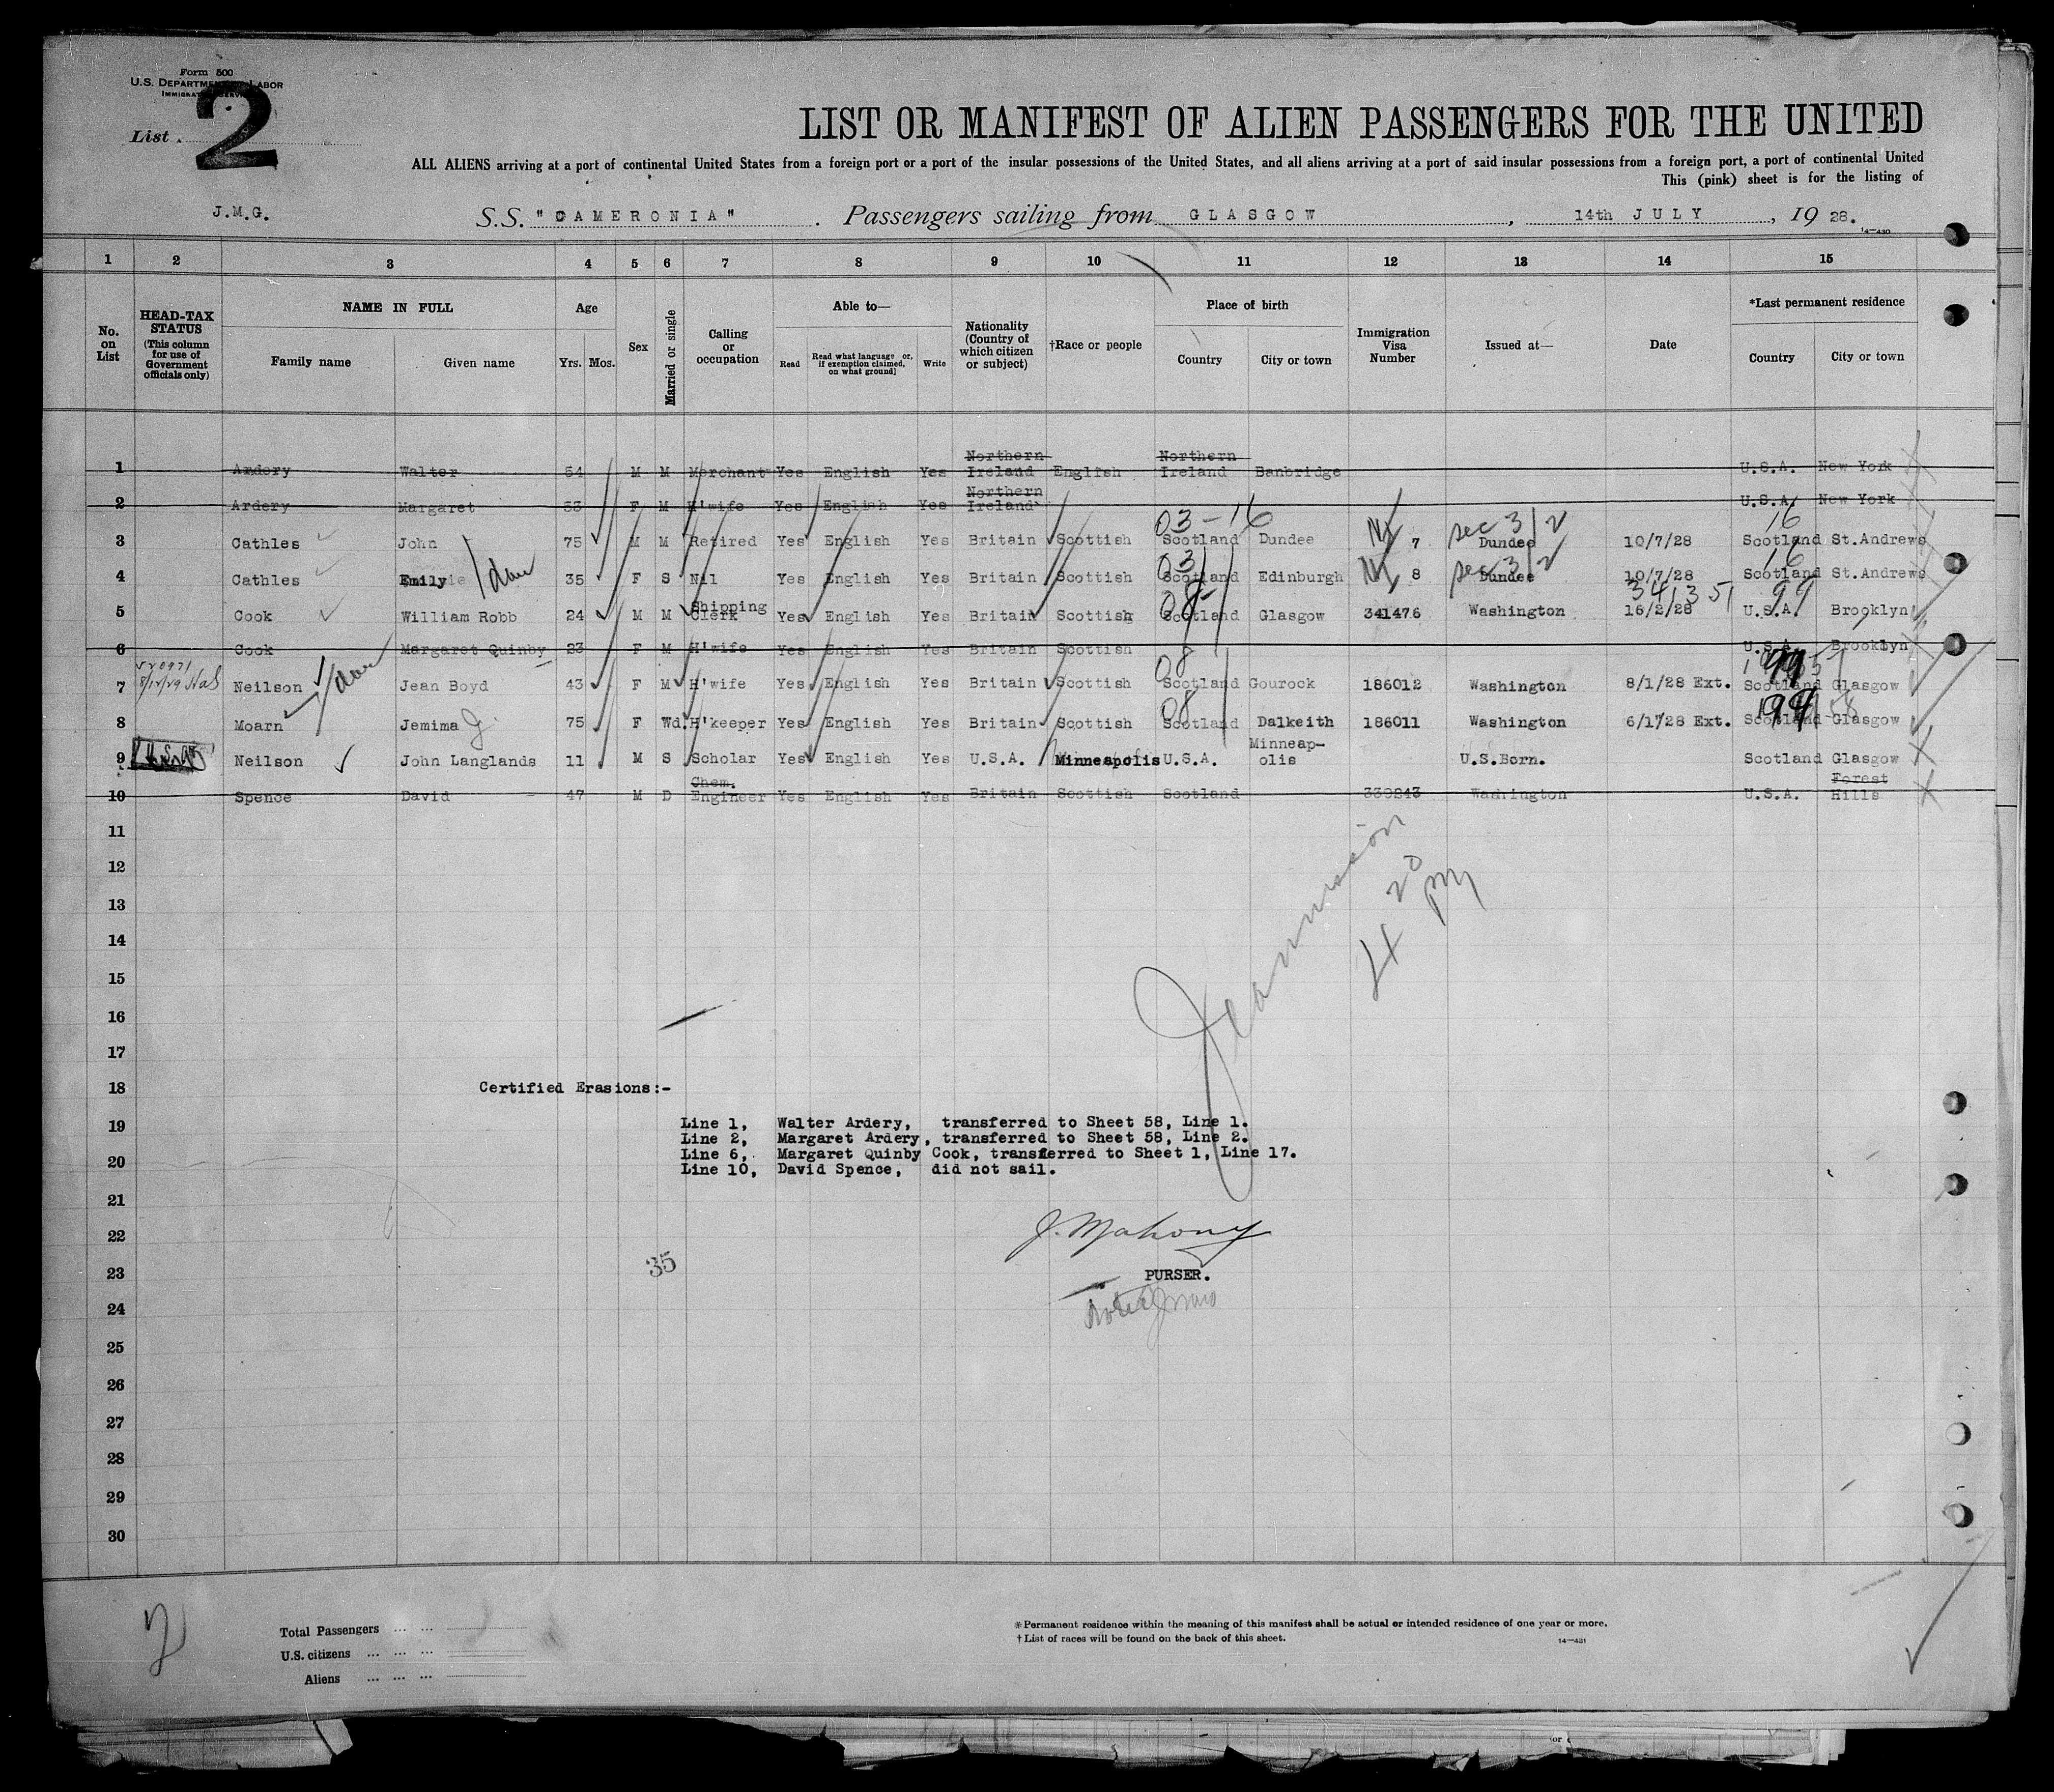 Form 500
U.S. DEPARTMENT OF LABOR
IMMIGRATION SERVICE
List 2
LIST OR MANIFEST OF ALIEN PASSENGERS FOR THE UNITED
ALL ALIENS arriving at a port of continental United States from a foreign port or a port of the insular possessions of the United States, and all aliens arriving at a port of said insular possessions from a foreign port, a port of continental United
This (pink) sheet is for the listing of
J.M.G.
S.S. "CAMERONIA". Passengers sailing from GLASGOW, 14th JULY, 19 28.
14—430
1 2 3 4 5 6 7 8 9 10 11 12 13 14 15
No. on List
HEAD-TAX STATUS (This column for use of Government officials only)
NAME IN FULL Family name Given name
Age Yrs. Mos.
Sex
Married or single
Calling or occupation
Able to— Read Read what language or, if exemption claimed, on what ground] Write
Nationality (Country of which citizen or subject)
†Race or people
Place of birth Country City or town
Immigration Visa Number
Issued at—
Date
*Last permanent residence Country City or town
1 Ardery Walter 54 M M Merchant Yes English Yes Northern Ireland English Northern Ireland Banbridge U.S.A. New York
2 Ardery Margaret 53 F M H'wife Yes English Yes Northern Ireland U.S.A. New York
03-16 sec 3/2 16
3 Cathles John 75 M M Retired Yes English Yes Britain Scottish Scotland Dundee 7 Dundee 10/7/28 Scotland St.Andrews
03 sec 3/2 16
4 Cathles Emily 35 F S Nil Yes English Yes Britain Scottish Scotland Edinburgh 8 Dundee 10/7/28 Scotland St.Andrews
08 99
5 Cook William Robb 24 M M Shipping Clerk Yes English Yes Britain Scottish Scotland Glasgow 341476 Washington 16/2/28 U.S.A. Brooklyn
6 Cook Margaret Quinby 23 F M H'wife Yes English Yes Britain Scottish U.S.A. Brooklyn
08 99
7 Neilson Jean Boyd 43 F M H'wife Yes English Yes Britain Scottish Scotland Gourock 186012 Washington 8/1/28 Ext. Scotland Glasgow
08 99
8 Moarn Jemima G. 75 F Wd. H'keeper Yes English Yes Britain Scottish Scotland Dalkeith 186011 Washington 6/1/28 Ext. Scotland Glasgow
9 Neilson John Langlands 11 M S Scholar Yes English Yes U.S.A. Minneapolis U.S.A. Minneap-olis U.S.Born. Scotland Glasgow
10 Spence David 47 M D Chem. Engineer Yes English Yes Britain Scottish Scotland 330243 Washington U.S.A. Forest Hills
11
12
4 20 pm
13
14
15
16
17
18 Certified Erasions:-
19 Line 1, Walter Ardery, transferred to Sheet 58, Line 1.
Line 2, Margaret Ardery, transferred to Sheet 58, Line 2.
20 Line 6, Margaret Quinby Cook, transferred to Sheet 1, Line 17.
Line 10, David Spence, did not sail.
21
22 J. Mahony
23 35 PURSER.
24
25
26
27
28
29
30
2
Total Passengers ... ...
U.S. citizens ... ... ...
Aliens ... ... ...
* Permanent residence within the meaning of this manifest shall be actual or intended residence of one year or more.
† List of races will be found on the back of this sheet.
14—431